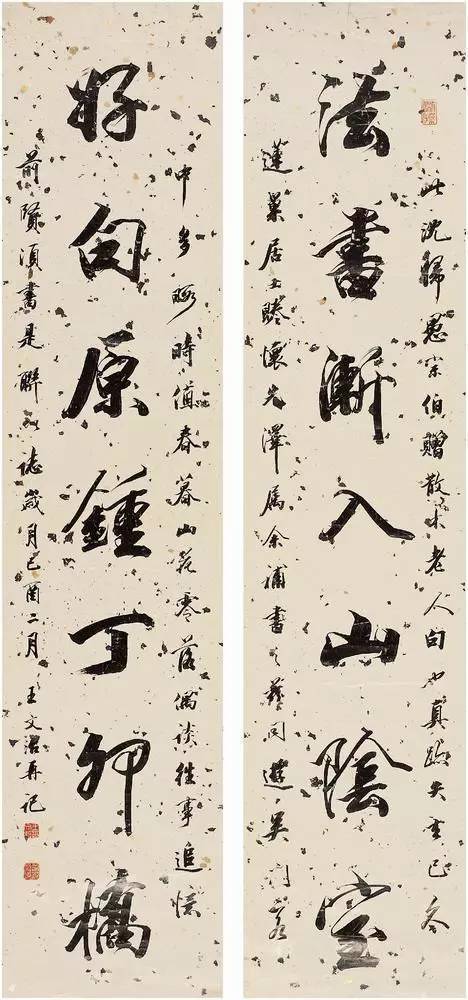 此沈歸愚宗伯贈散木老人句也真跡失去已久
法書漸入山陰室
蓬巢居士睠懷先澤属余補書之茲同遊吳門客
中多暇時值春暮山花零落偶談往事追憶
好句原鍾丁卯橋
前賢須書是聯以誌歲月己酉二月王文治再記